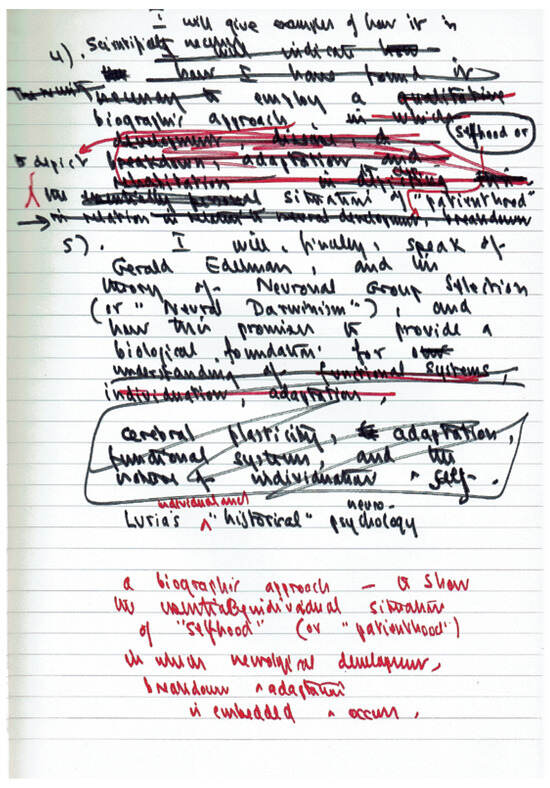 I will give examples of how it is
4). Scientifically necessary I will indicate how
the how I have found it
The results necessary to employ a qualitative
biographic approach, in which
development, disease, &
selfhood or
to depict breakdown, adaptation and
rehabilitation in depicting
the essentially personal situation of "patienthood"
→ in relation to neural development, breakdown
5). I will, finally, speak of
Gerald Edelman, and his
theory of Neuronal Group Selection
(or "Neural Darwinism"), and
how this promises to provide a
biological foundation for our
understanding of functional systems,
individuation, adaptation,
cerebral plasticity, & adaptation,
functional systems, and the
nature of individuation & self.
individual and neuro-
Luria's ^ "historical" psychology
a biographic approach — to show
the essentially individual situation
of "selfhood" (or "patienthood")
in which neurological development,
breakdown & adaptation
is embedded & occurs.